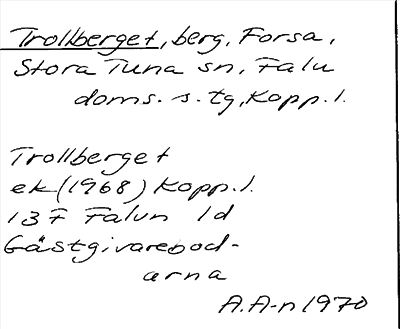 Trollberget, berg, Forsa,
Stora Tuna sn, Falu
doms. s. tg, Kopp. l.
Trollberget
ek (1968) Kopp. l.
13F Falun 1d
Gästgivarebod-
arna
A.A-n 1970